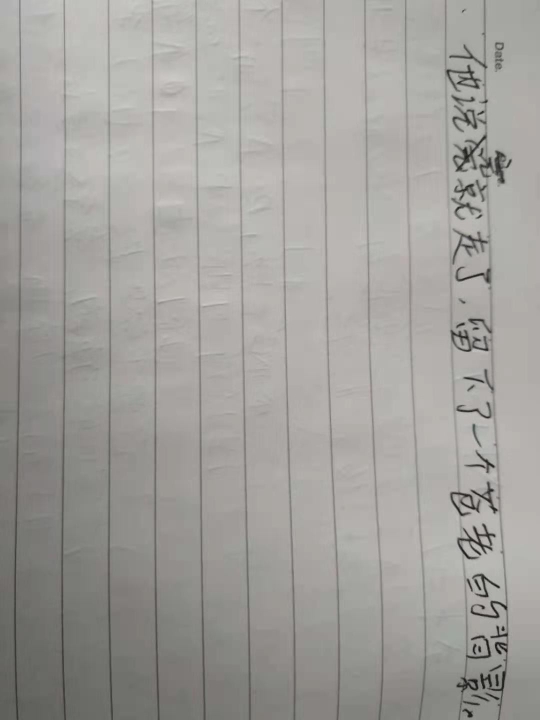 Date.
他说完就走了，留下了一个苍老的背影。